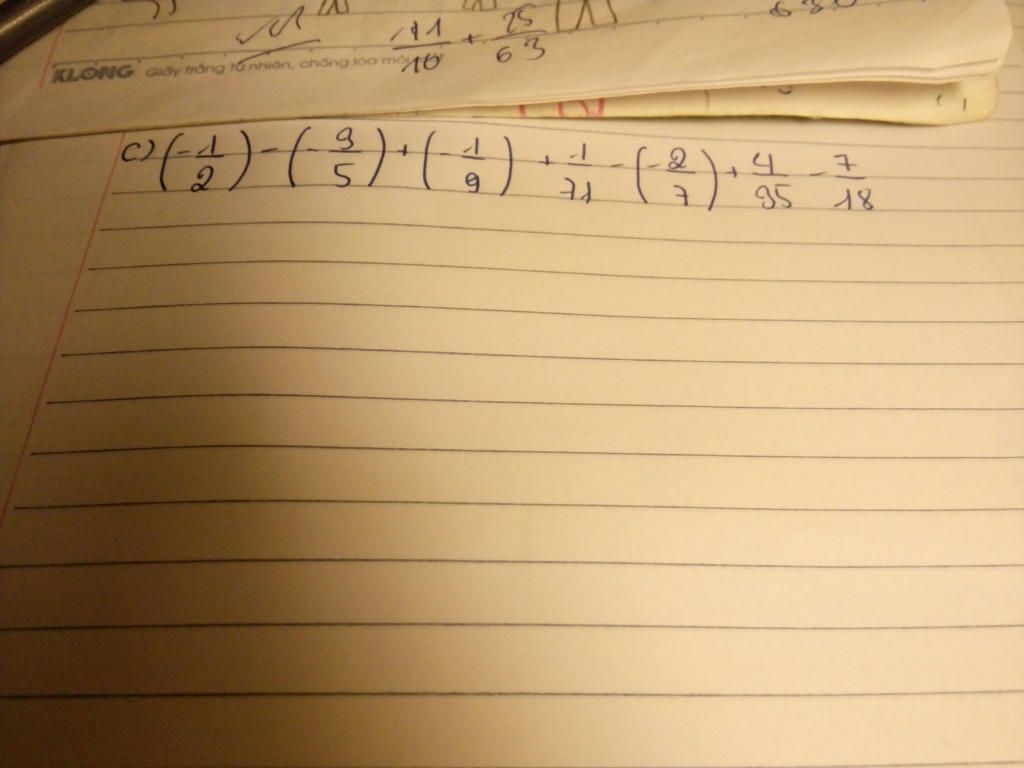 11/10 + 25/63
KLONG Giấy trắng tự nhiên, chống lóa
c) (-1/2) - (-3/5) + (-1/9) + 1/71 - (-2/7) + 4/35 - 7/18